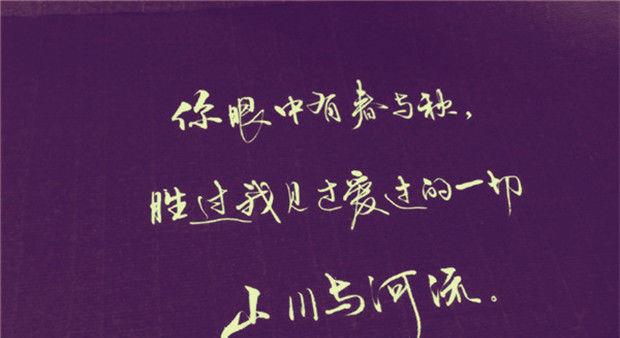 你眼中有春与秋，
胜过我见过爱过的一切
山川与河流。